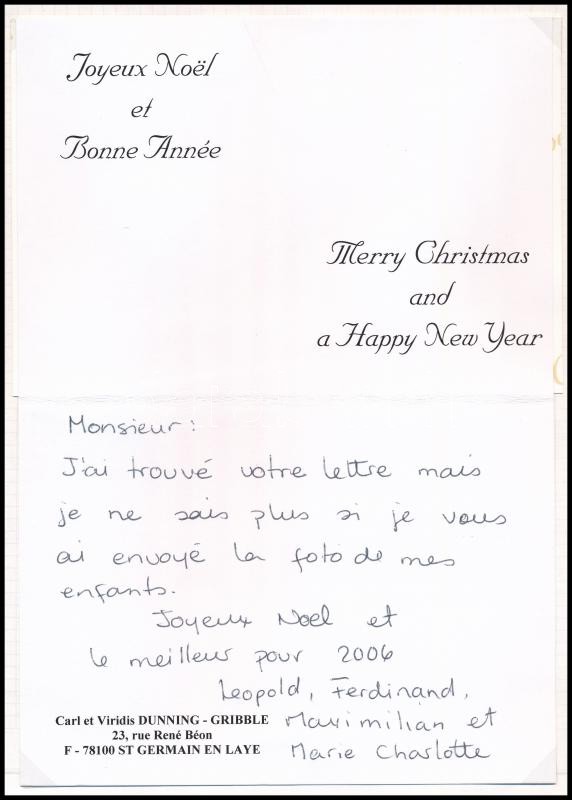 Joyeux Noël
et
Bonne Année
Merry Christmas
and
a Happy New Year
Monsieur :
J'ai trouvé votre lettre mais
je ne sais plus si je vous
ai envoyé la foto de mes
enfants.
Joyeux Noel et
le meilleur pour 2006
Leopold, Ferdinand,
Maximilian et
Marie Charlotte
Carl et Viridis DUNNING - GRIBBLE
23, rue René Béon
F - 78100 ST GERMAIN EN LAYE